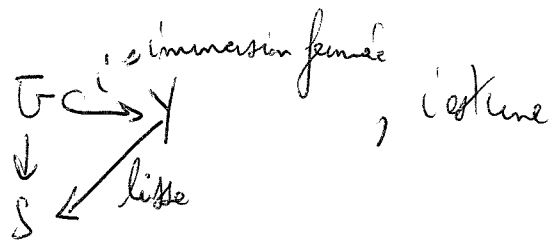 i, immersion fermée
U Y , i est une
S lisse